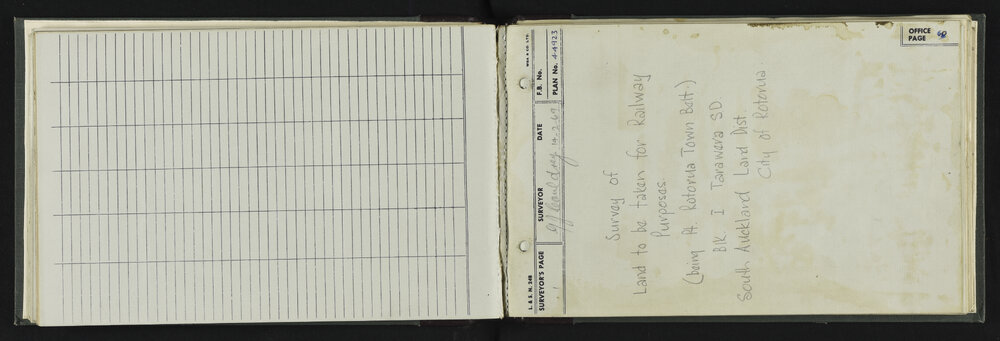 L. & S. N. 24B
WHA & CO. LTD.
SURVEYOR'S PAGE 1
SURVEYOR
DATE 14.2.69
F.B. No.
PLAN No. 44923
OFFICE PAGE 60
Survey of
Land to be taken for Railway
Purposes
(being Pt. Rotorua Town Belt.)
Blk I Tarawera SD
South Auckland Land Dist.
City of Rotorua.